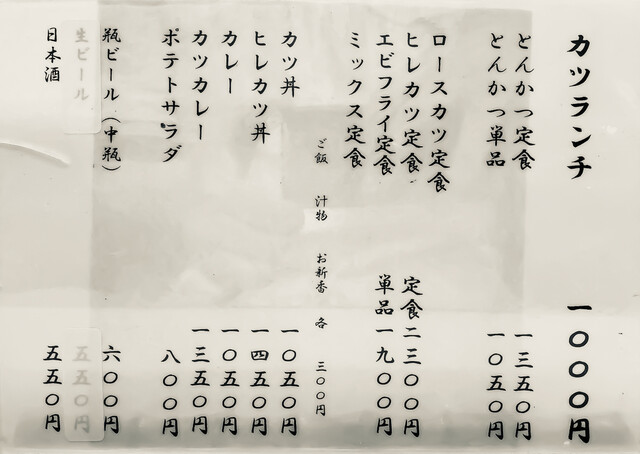 カツランチ 一〇〇〇円
とんかつ定食 一三五〇円
とんかつ単品 一〇五〇円
ロースカツ定食
ヒレカツ定食 定食二三〇〇円
エビフライ定食 単品一九〇〇円
ミックス定食
ご飯 汁物 お新香 各 三〇〇円
カツ丼 一〇五〇円
ヒレカツ丼 一四五〇円
カレー 一〇五〇円
カツカレー 一三五〇円
ポテトサラダ 八〇〇円
瓶ビール（中瓶） 六〇〇円
生ビール 五五〇円
日本酒 五五〇円